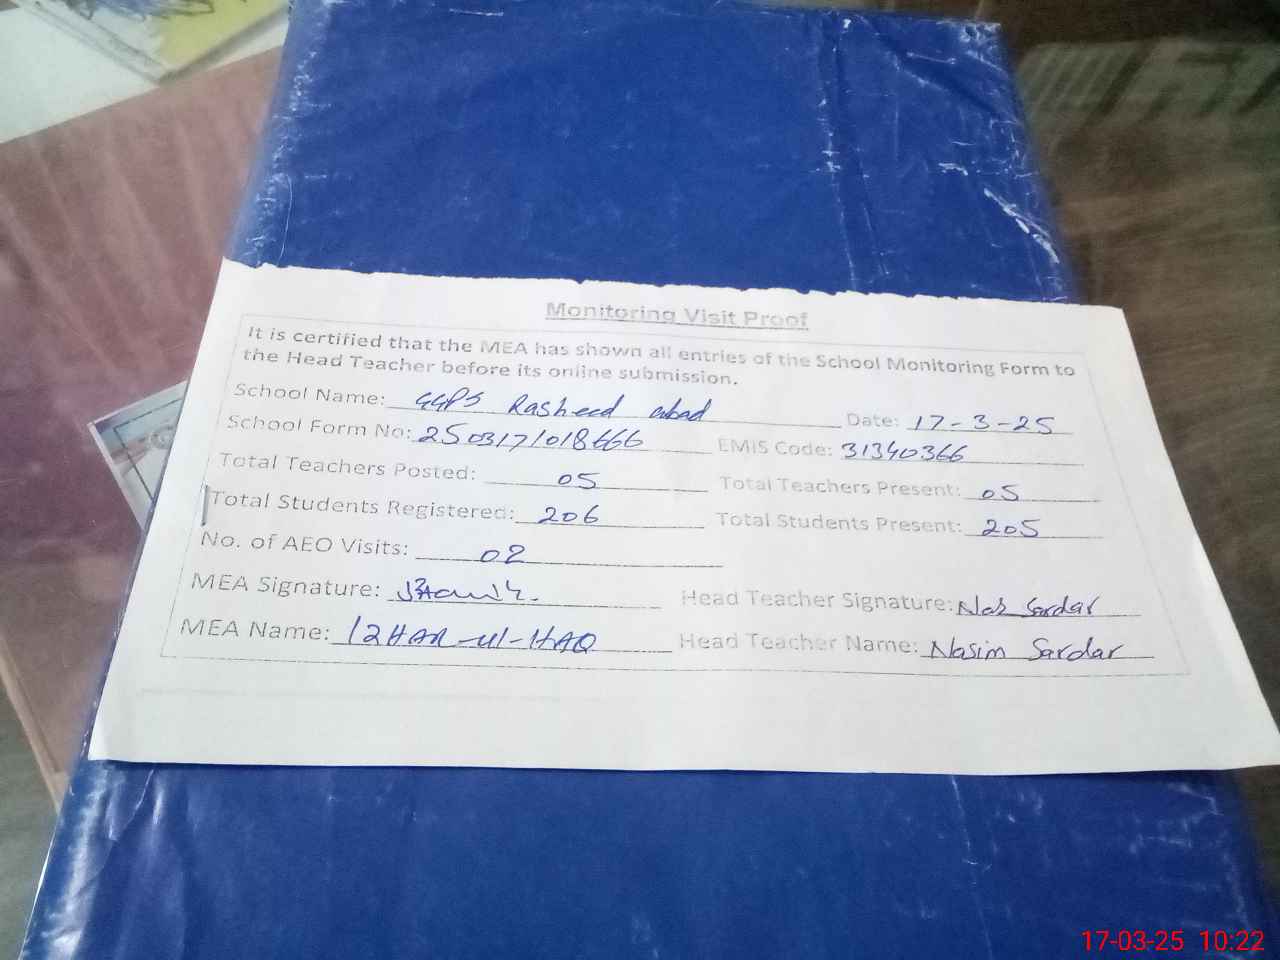 Monitoring Visit Proof
It is certified that the MEA has shown all entries of the School Monitoring Form to
the Head Teacher before its online submission.
School Name: GGPS Rasheed abad Date: 17-3-25
School Form No: 2503171018666 EMIS Code: 31340366
Total Teachers Posted: 05 Total Teachers Present: 05
Total Students Registered: 206 Total Students Present: 205
No. of AEO Visits: 02
MEA Signature: Head Teacher Signature: Sardar
MEA Name: IZHAR-ul-HAQ Head Teacher Name: Nasim Sardar
17-03-25 10:22